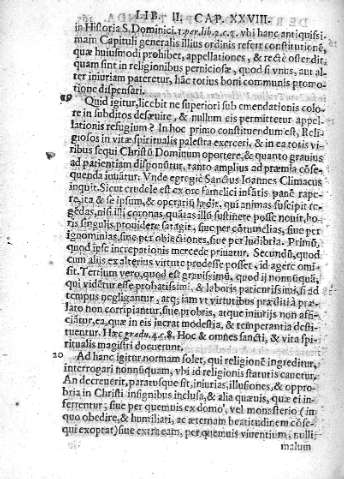 LIB. II. CAP. XXVIII.
in Historia S. Dominici. 1. per lib. 2. c. 5. vbi hanc antiquissi-
mam Capituli generalis illius ordinis refert constitutionē,
quæ huiusmodi prohibet, appellationes, & rectè ostendit,
quam sint in religionibus perniciosæ, quod si vnus, aut al-
ter iniuriam pateretur, hāc totius boni communis promo-
tione dispensari.
19 Quid igitur, licebit ne superiori sub emendationis colo-
re in subditos desæuire, & nullum eis permittetur appel-
lationis refugium? In hoc primo constituendum est, Reli-
giosos in vitæ spiritualis palestra exerceri, & in ea totis vi-
ribus sequi Christū Dominum oportere, & quanto grauius
ad patientiam disponitur, tanto amplius ad præmia cōse-
quenda iuuatur. Vnde egregiè Sanctus Ioannes Climacus
inquit. Sicut crudele est ex ore famelici infātis panē rape-
re, ita & se ipsum, & operariū lædit, qui animas suscipit re-
gēdas, nisi illi coronas, quātas illū sustinere posse nouit, ho-
ris singulis prouidere satagit, siue per cōtumelias, siue per
ignominias, siue per obiectiones, siue per ludibria. Primū,
quod ipse increpationis mercede priuatur. Secundū, quod
cum alijs ex alterius virtute prodesse posset, id agere omi-
sit. Tertium vero, quod est grauissimū, quod ij nonnūquā,
qui vidētur esse probatissimi, & laboris patientissimi, si ad
tempus negligantur, atq; iam vt virtutibus præditi à præ-
lato non corripiantur, siue probris, atque iniurijs non affi-
ciātur, ea, quæ in eis inerat modestia, & temperantia desti-
tuentur. Hæc gradu. 4. c. 8. Hoc & omnes sancti, & vita spi-
ritualis magistri docuerunt.
20 Ad hanc igitur normam solet, qui religionē ingreditur,
interrogari nonnūquam, vbi id religionis statutis cauetur,
An decreuerit, paratusque sit, iniurias, illusiones, & oppro-
bria in Christi insignibus inclusa, & alia quæuis, quæ ei in-
ferrentur; siue per quemuis ex domo, vel monasterio (in
quo obedire, & humiliari, ac æternam beatitudinem cōse-
qui exoptat) siue extra eam, per quemuis viuentium; nulli
malum